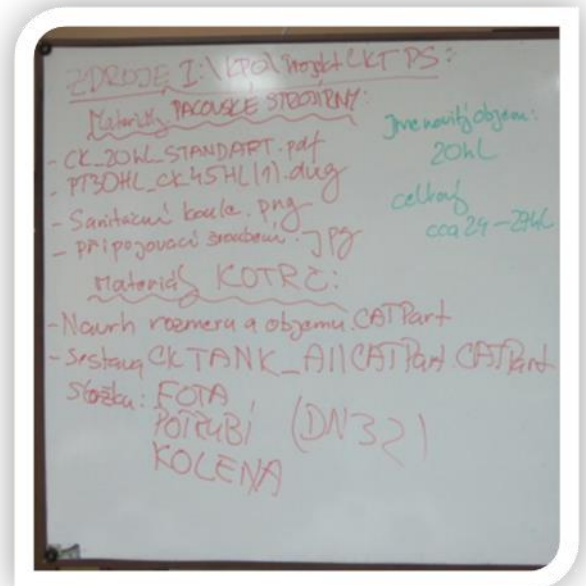 ZDROJE I:\KPO\Projekt CKT PS:
Materiály PACOVSKÉ STROJÍRNY:
- CK_20hL_STANDART.pdf
- PT30HL_CK45HL(1).dwg
- Sanitační koule.png
- připojovací šroubení.jpg
Materiály KOTRČ:
- Navrh rozmeru a objemu.CATPart
- Sestava CKTANK_AllCATPart.CATPart
Složku: FOTA
POTRUBÍ (DN32)
KOLENA
Jmenovitý objem:
20hL
celkový
cca 24-27hL